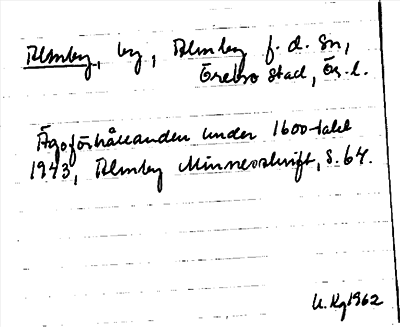 Almby, by, Almby f. d. sn,
Örebro stad, Ör. l.
Ägoförhållanden under 1600-talet
1943, Almby Minnesskrift, S. 64.
U. Kg 1962